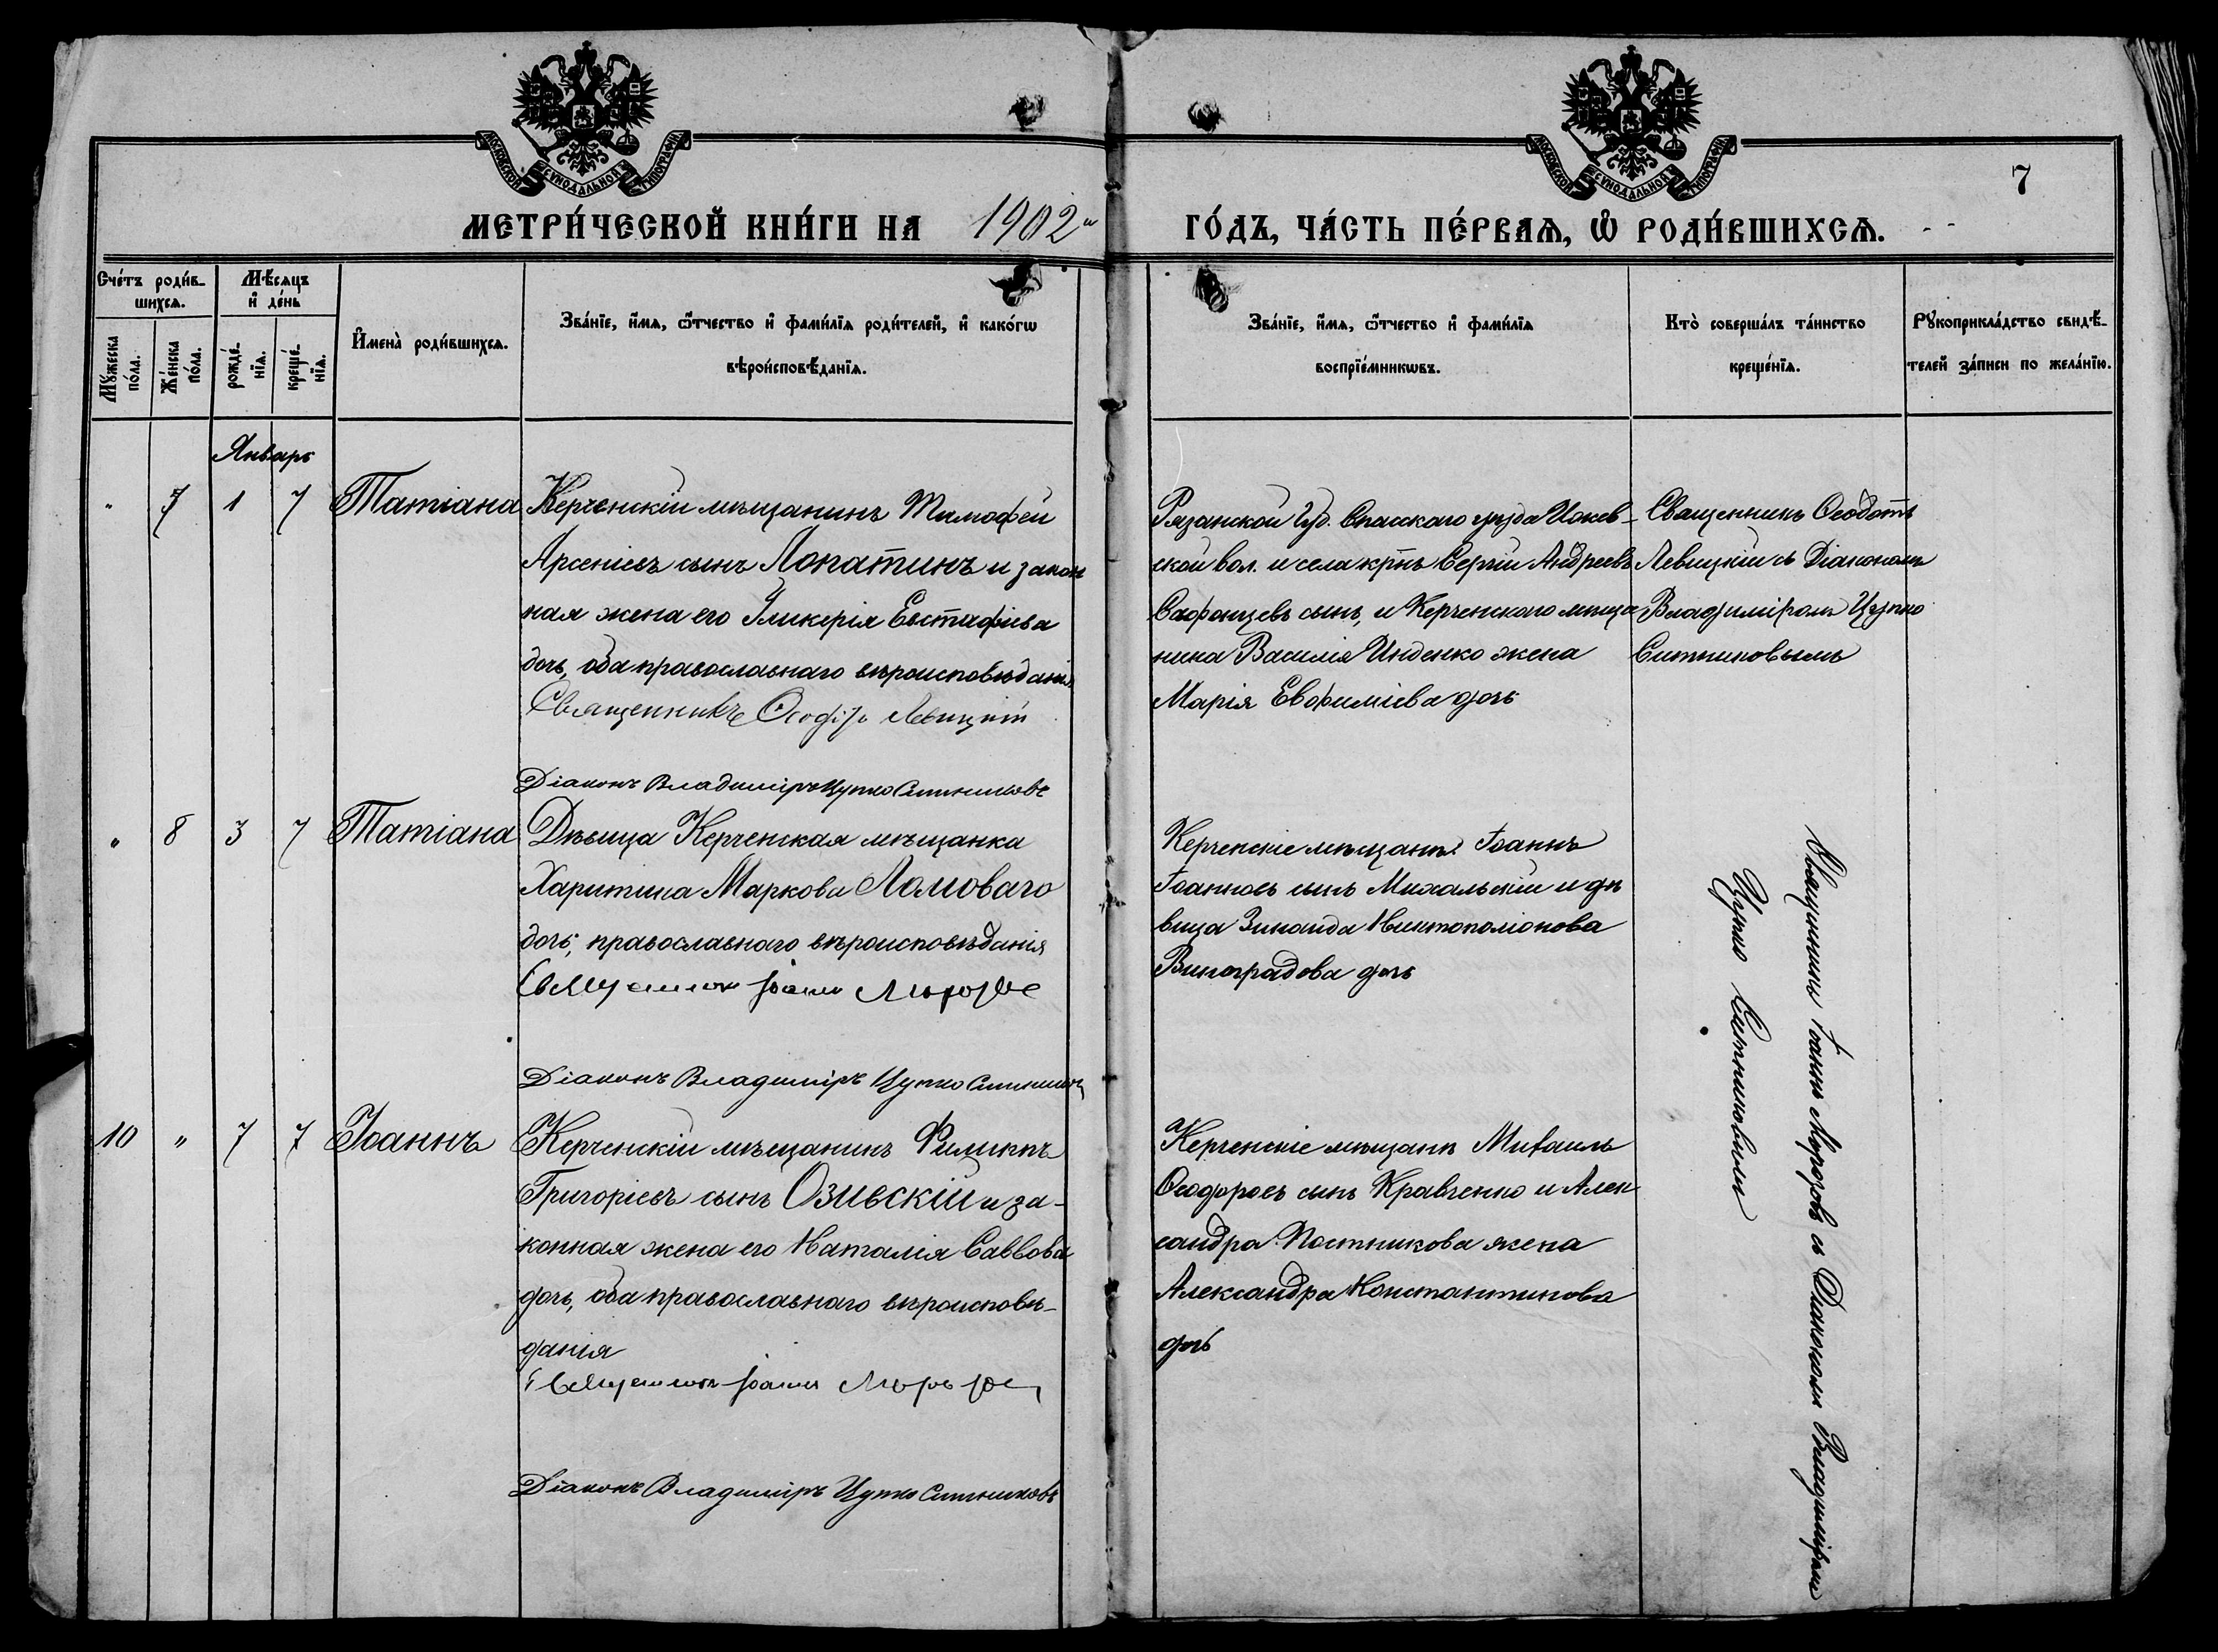 МОСКОВСКОЙ СѴНОДАЛЬНОЙ ТИПОГРАФІИ
МОСКОВСКОЙ СѴНОДАЛЬНОЙ ТИПОГРАФІИ
7
МЕТРИ́ЧЕСКОЙ КНИ́ГИ НА 1902
ГО́ДЪ, ЧА́СТЬ ПЕ́РВАѦ, Ѡ РОДИ́ВШИХСѦ.
Сче́тъ роди́в-
шихсѧ.
Мꙋ́жеска
по́ла.
Же́нска
по́ла.
Мѣ́сѧцъ
и де́нь
рожде́-
нїѧ.
креще́-
нїѧ.
Имена̀ роди́вшихсѧ.
Зва́нїе, и́мѧ, ѻ́тчество и фами́лїѧ роди́телей, и како́гѡ
вѣроисповѣ́данїѧ.
Зва́нїе, и́мѧ, ѻ́тчество и фами́лїѧ
воспрїе́мникѡвъ.
Кто̀ соверша́лъ та́инство
креще́нїѧ.
Рꙋкоприкла́дство свидѣ́-
телей за́писи по жела́нїю.
Январь
" 7 1 7 Татіана
Керченскій мѣщанинъ Тимофей
Арсеніевъ сынъ Лопатинъ и закон
ная жена его Гликерія Евстафіева
дочь, оба православнаго вѣроисповѣданія
Священникъ Ѳеодотъ Левицкій
Діаконъ Владиміръ Цупко Ситниковъ
Рязанской Губ. Спасскаго уѣзда
ской вол. и села крнъ Сергій Андреевъ
сынъ, и Керченскаго мѣща
нина Василія Инденко жена
Марія Евфиміева дочь
Священникъ Ѳеодотъ
Левицкій съ Діакономъ
Владиміромъ Цупко
Ситниковымъ
" 8 3 7 Татіана
Дѣвица Керченская мѣщанка
Харитина Маркова Ломоваго
дочь, православнаго вѣроисповѣданія
Священникъ Іоаннъ Морозовъ
Діаконъ Владиміръ Цупко Ситниковъ
Керченскіе мѣщане Іоаннъ
Іоанновъ сынъ Михальскій и дѣ
вица Зинаида
Виноградова дочь
Священникъ Іоаннъ Морозовъ съ Діакономъ Владиміромъ
Цупко Ситниковымъ
10 " 7 7 Іоаннъ
Керченскій мѣщанинъ Филиппъ
Григоріевъ сынъ Озивскій и за-
конная жена его Наталія Саввова
дочь, оба православнаго вѣроисповѣ-
данія
Священникъ Іоаннъ Морозовъ
Діаконъ Владиміръ Цупко Ситниковъ
Керченскіе мѣщане Михаилъ
Ѳеодоровъ сынъ Кравченко и Алек
сандра Постникова жена
Александра Константинова
дочь